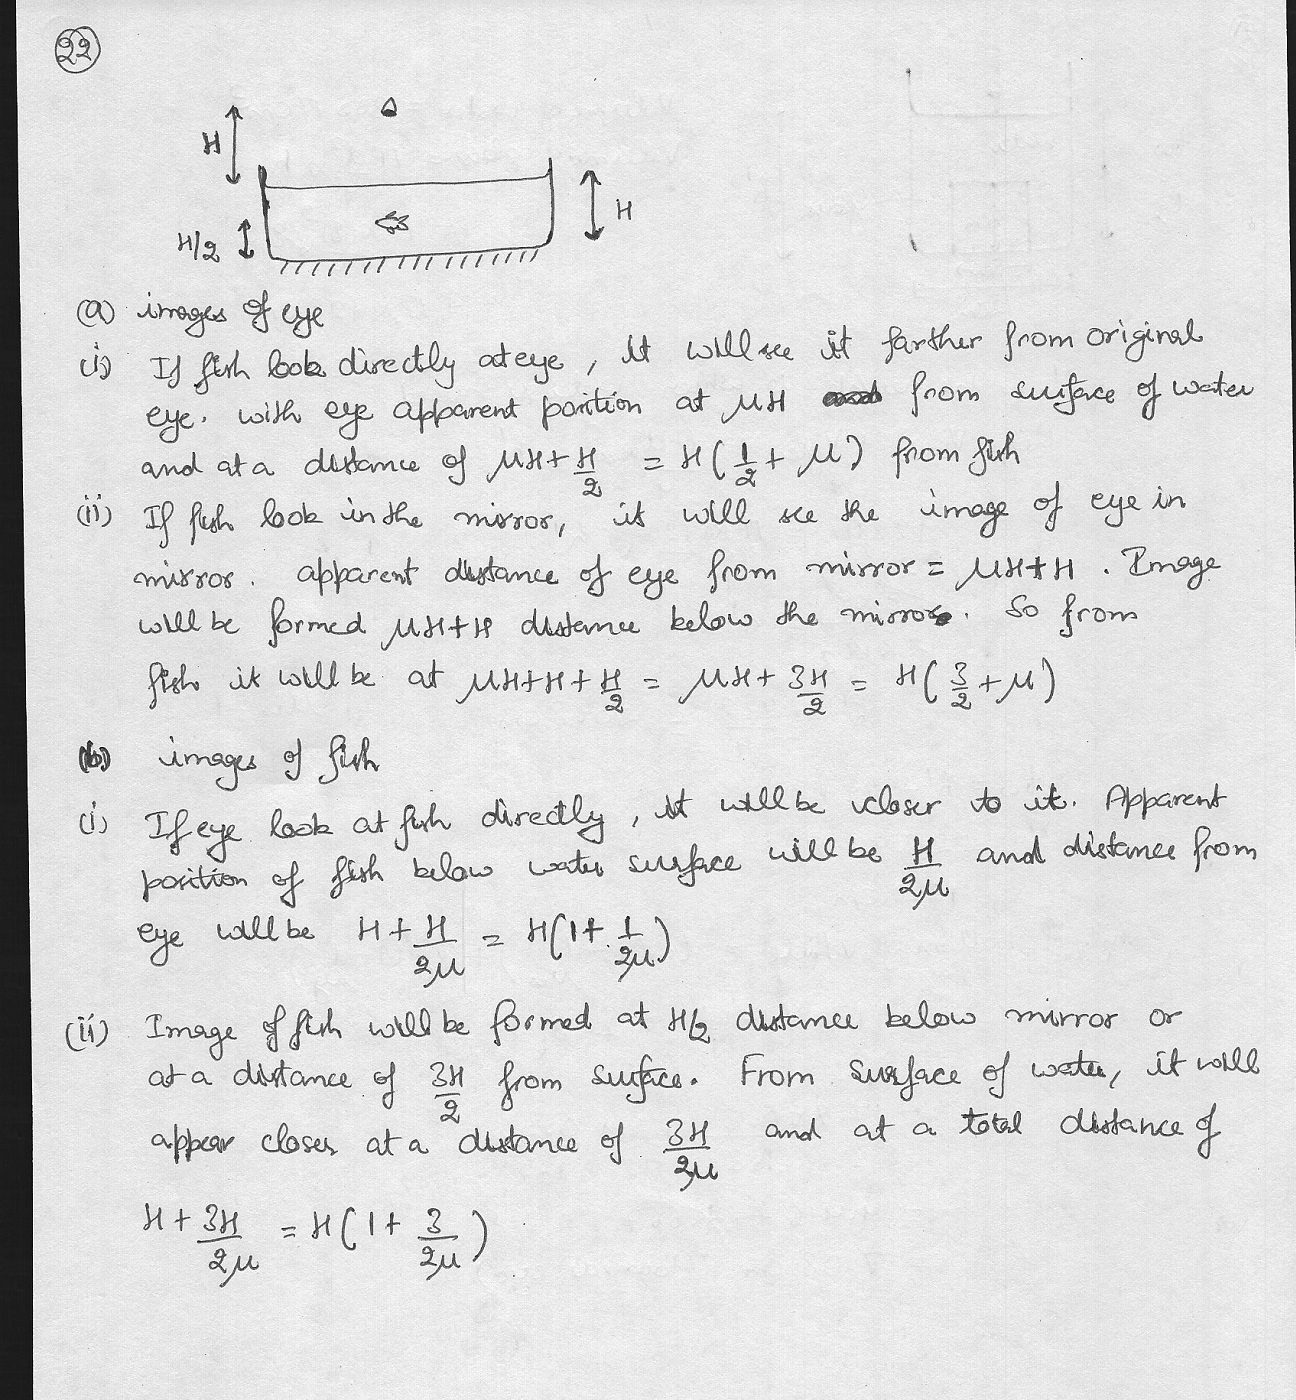 22
H
H/2
H
(a) images of eye
(i) If fish look directly at eye, it will see it farther from original
eye. with eye apparent position at μH from surface of water
and at a distance of μH + H/2 = H(1/2 + μ) from fish
(ii) If fish look in the mirror, it will see the image of eye in
mirror. apparent distance of eye from mirror = μH + H. Image
will be formed μH + H distance below the mirror. So from
fish it will be at μH + H + H/2 = μH + 3H/2 = H(3/2 + μ)
(b) images of fish
(i) If eye look at fish directly, it will be closer to it. Apparent
position of fish below water surface will be H/2μ and distance from
eye will be H + H/2μ = H(1 + 1/2μ)
(ii) Image of fish will be formed at H/2 distance below mirror or
at a distance of 3H/2 from surface. From surface of water, it will
appear closer at a distance of 3H/2μ and at a total distance of
H + 3H/2μ = H(1 + 3/2μ)